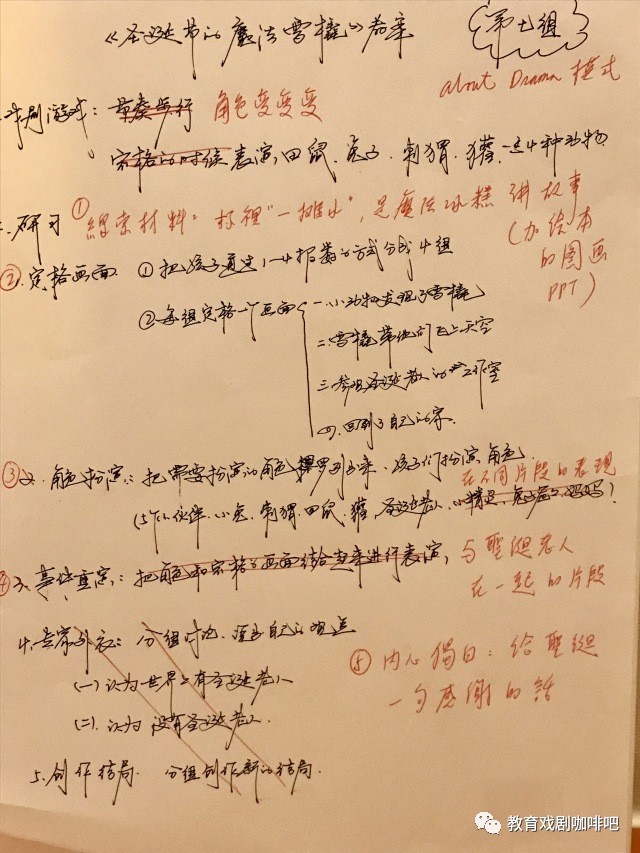 《圣诞节的魔法雪橇》教案
第七组
about Drama 模式
戏剧游戏：节奏步行 角色变变变
定格的时候表演田鼠、兔子、刺猬、獾 这4种动物
二、研习 ① 線索材料：杯裡“一摊水”，是魔法冰糕 讲故事
(加绘本的图画PPT)
② 1.定格画面 ①把孩子通过1-4报数的方式分成4组
②每组定格一个画面 一.小动物发现了雪橇
二.雪橇带他们飞上天空
三.参观圣诞老人的工作室
四.回到了自己的家.
③ 2、角色扮演：把需要扮演的角色罗列出来、孩子们扮演角色
在不同片段的表现
(5个小伙伴、小兔、刺猬、田鼠、獾、圣诞老人、小精灵、兔子爸爸妈妈)
④ 3、事件重演：把角色和定格的画面结合起来进行表演，与聖誕老人
在一起的片段
4.专家外衣：分组讨论、陈述自己的观点
⑤ 内心獨白：给聖誕
一句感謝的話
(一)认为世界上有圣诞老人
(二).认为没有圣诞老人.
5.创作结局. 分组创作新的结局.
教育戏剧咖啡吧